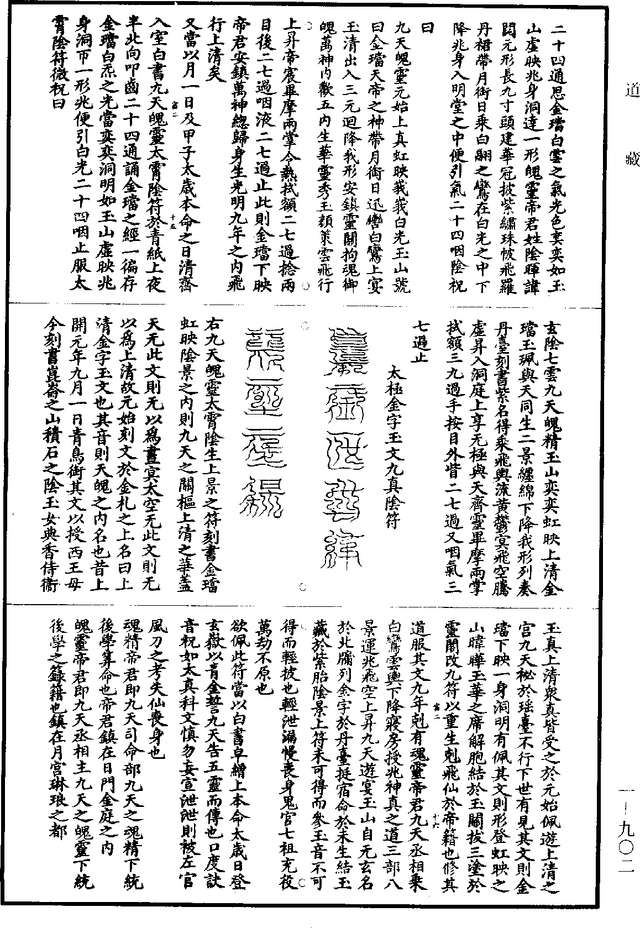 道藏
二十四通思金璫白雲之氣光色奕奕如玉
山虛映兆身洞達一形魄靈帝君姓陰暉諱
閎元形長九寸頭建華冠披紫繡珠帔飛羅
丹裙帶月銜日乘白翮之鸞在白光之中下
降兆身入明堂之中便引氣二十四咽陰祝
曰
九天魄靈元始上真虹映我我白光玉山號
曰金璫天帝之神帶月銜日迅轡白鸞上宴
玉清出入三元迴降我形安鎮靈關拘魂御
魄萬神內歡五內生華靈秀玉顏策雲飛行
上昇帝宸畢摩兩掌令熱拭額二七過捻兩
目後二七過咽液二七過止此則金璫下映
帝君安鎮萬神總歸身生光明九年之內飛
行上清矣
又當以月一日及甲子太歲本命之日清齋
入室白書九天魄靈太霄陰符於青紙上夜
半北向叩齒二十四通誦金璫之經一徧存
金璫白炁之光當奕奕洞明如玉山虛映兆
身洞帀一形兆便引白光二十四咽止服太
霄陰符微祝曰
玄陰七雲九天魄精玉山奕奕虹映上清金
璫玉珮與天同生二景纏綿下降我形列奏
丹臺刻書紫名得乘飛輿流黃鬱冥飛空騰
虛昇入洞庭上享元極與天齊靈畢摩兩掌
拭額三九過手按目外眥二七過又咽氣三
七過止
太極金字玉文九真陰符
右九天魄靈太霄陰生上景之符刻書金璫
虹映陰景之內則九天之關樞上清之華蓋
天无此文則无以為晝冥太空无此文則无
以為上清故元始刻文於金札之上名曰上
清金字玉文也其音則天魄之內名也昔上
開元年九月一日青鳥銜其文以授西王母
今刻書崑崙之山積石之陰玉女典香侍衛
玉真上清衆真皆受之於元始佩遊上清之
宮九天祕於瑤臺不行下世有見其文則金
璫下映一身洞明有佩其文則形登虹映之
山暐曄玉華之席解胞結於玉關拔三塗於
靈關改九符以重生剋飛仙於帝籍也修其
道服其文九年剋有魂靈帝君九天丞相乘
白鸞雲輿下降寢房授兆神真之道三部八
景運兆飛空上昇九天遊宴玉山自元玄名
於北牖列金字於丹臺挺宿命於未生結玉
藏於紫胎陰景上符未可得而參玉音不可
得而輕披也輕泄漏慢喪身鬼官七祖充役
萬劫不原也
欲佩此符當以白書皁繒上本命太歲日登
玄嶽以青金誓九天告五靈而傳也口度訣
音祝如太真科文慎勿妄宣泄泄則被左官
風刀之考失仙喪身也
魂精帝君即九天司命部九天之魂精下統
後學算命也帝君鎮在日門金庭之內
魄靈帝君即九天丞相主九天之魄靈下統
後學之錄籍也鎮在月宮琳琅之都
一—九〇二